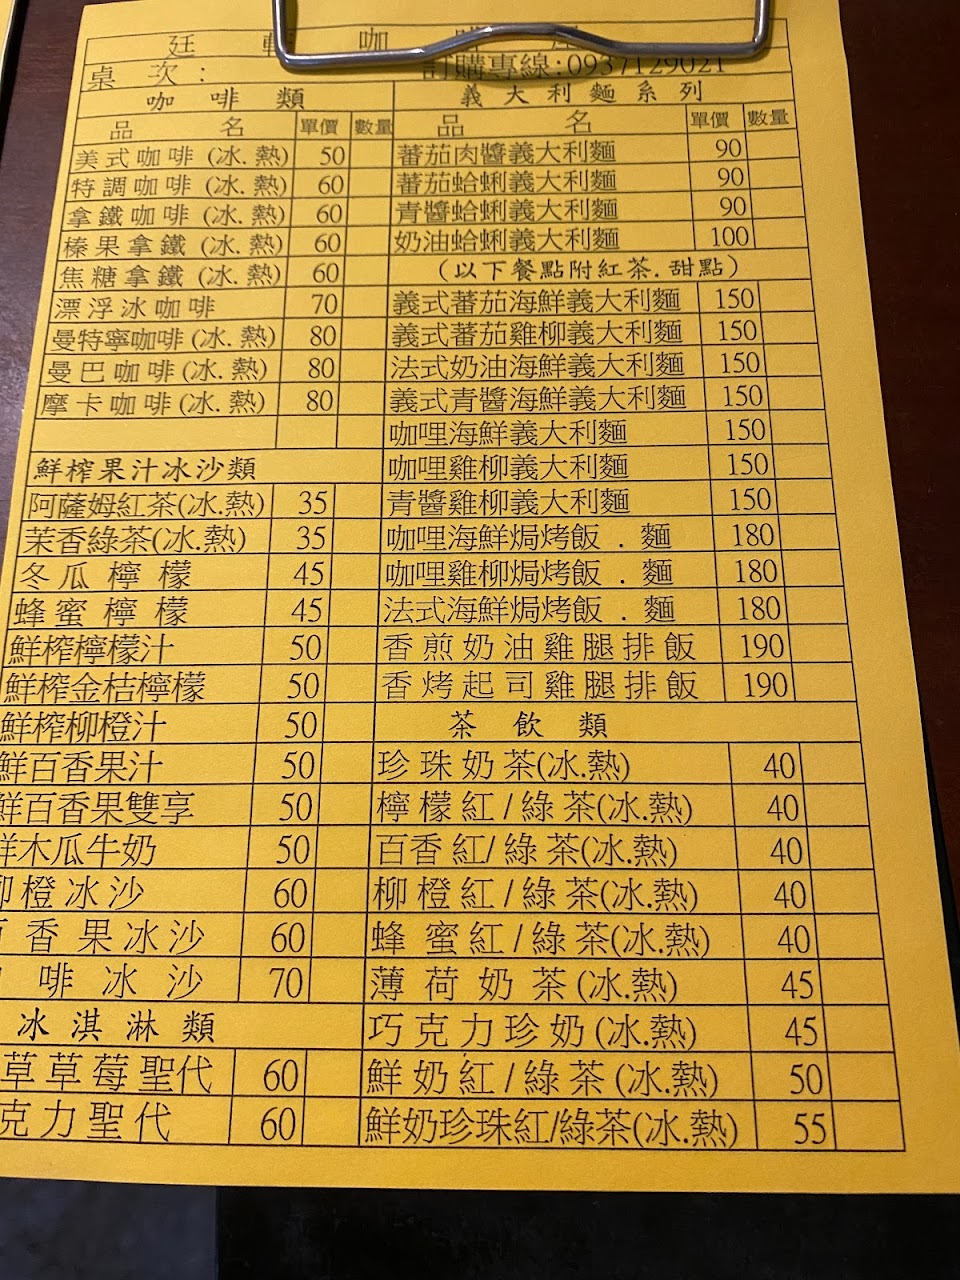 廷 咖
桌 次： 訂購專線:0937129021
咖 啡 類
品 名 單價 數量
美式咖啡 (冰. 熱) 50
特調咖啡 (冰. 熱) 60
拿鐵咖啡 (冰. 熱) 60
榛果拿鐵 (冰. 熱) 60
焦糖拿鐵 (冰. 熱) 60
漂浮冰咖啡 70
曼特寧咖啡 (冰. 熱) 80
曼巴咖啡 (冰. 熱) 80
摩卡咖啡 (冰. 熱) 80
鮮榨果汁冰沙類
阿薩姆紅茶(冰.熱) 35
茉香綠茶(冰.熱) 35
冬瓜檸檬 45
蜂蜜檸檬 45
鮮榨檸檬汁 50
鮮榨金桔檸檬 50
鮮榨柳橙汁 50
鮮百香果汁 50
鮮百香果雙享 50
木瓜牛奶 50
橙冰沙 60
香果冰沙 60
啡冰沙 70
冰淇淋類
草草莓聖代 60
克力聖代 60
義大利麵系列
品 名 單價 數量
蕃茄肉醬義大利麵 90
蕃茄蛤蜊義大利麵 90
青醬蛤蜊義大利麵 90
奶油蛤蜊義大利麵 100
（以下餐點附紅茶.甜點）
義式蕃茄海鮮義大利麵 150
義式蕃茄雞柳義大利麵 150
法式奶油海鮮義大利麵 150
義式青醬海鮮義大利麵 150
咖哩海鮮義大利麵 150
咖哩雞柳義大利麵 150
青醬雞柳義大利麵 150
咖哩海鮮焗烤飯．麵 180
咖哩雞柳焗烤飯．麵 180
法式海鮮焗烤飯．麵 180
香煎奶油雞腿排飯 190
香烤起司雞腿排飯 190
茶 飲 類
珍珠奶茶(冰.熱) 40
檸檬紅/綠茶(冰.熱) 40
百香紅/綠茶(冰.熱) 40
柳橙紅/綠茶(冰.熱) 40
蜂蜜紅/綠茶(冰.熱) 40
薄荷奶茶(冰.熱) 45
巧克力珍奶(冰.熱) 45
鮮奶紅/綠茶(冰.熱) 50
鮮奶珍珠紅/綠茶(冰.熱) 55